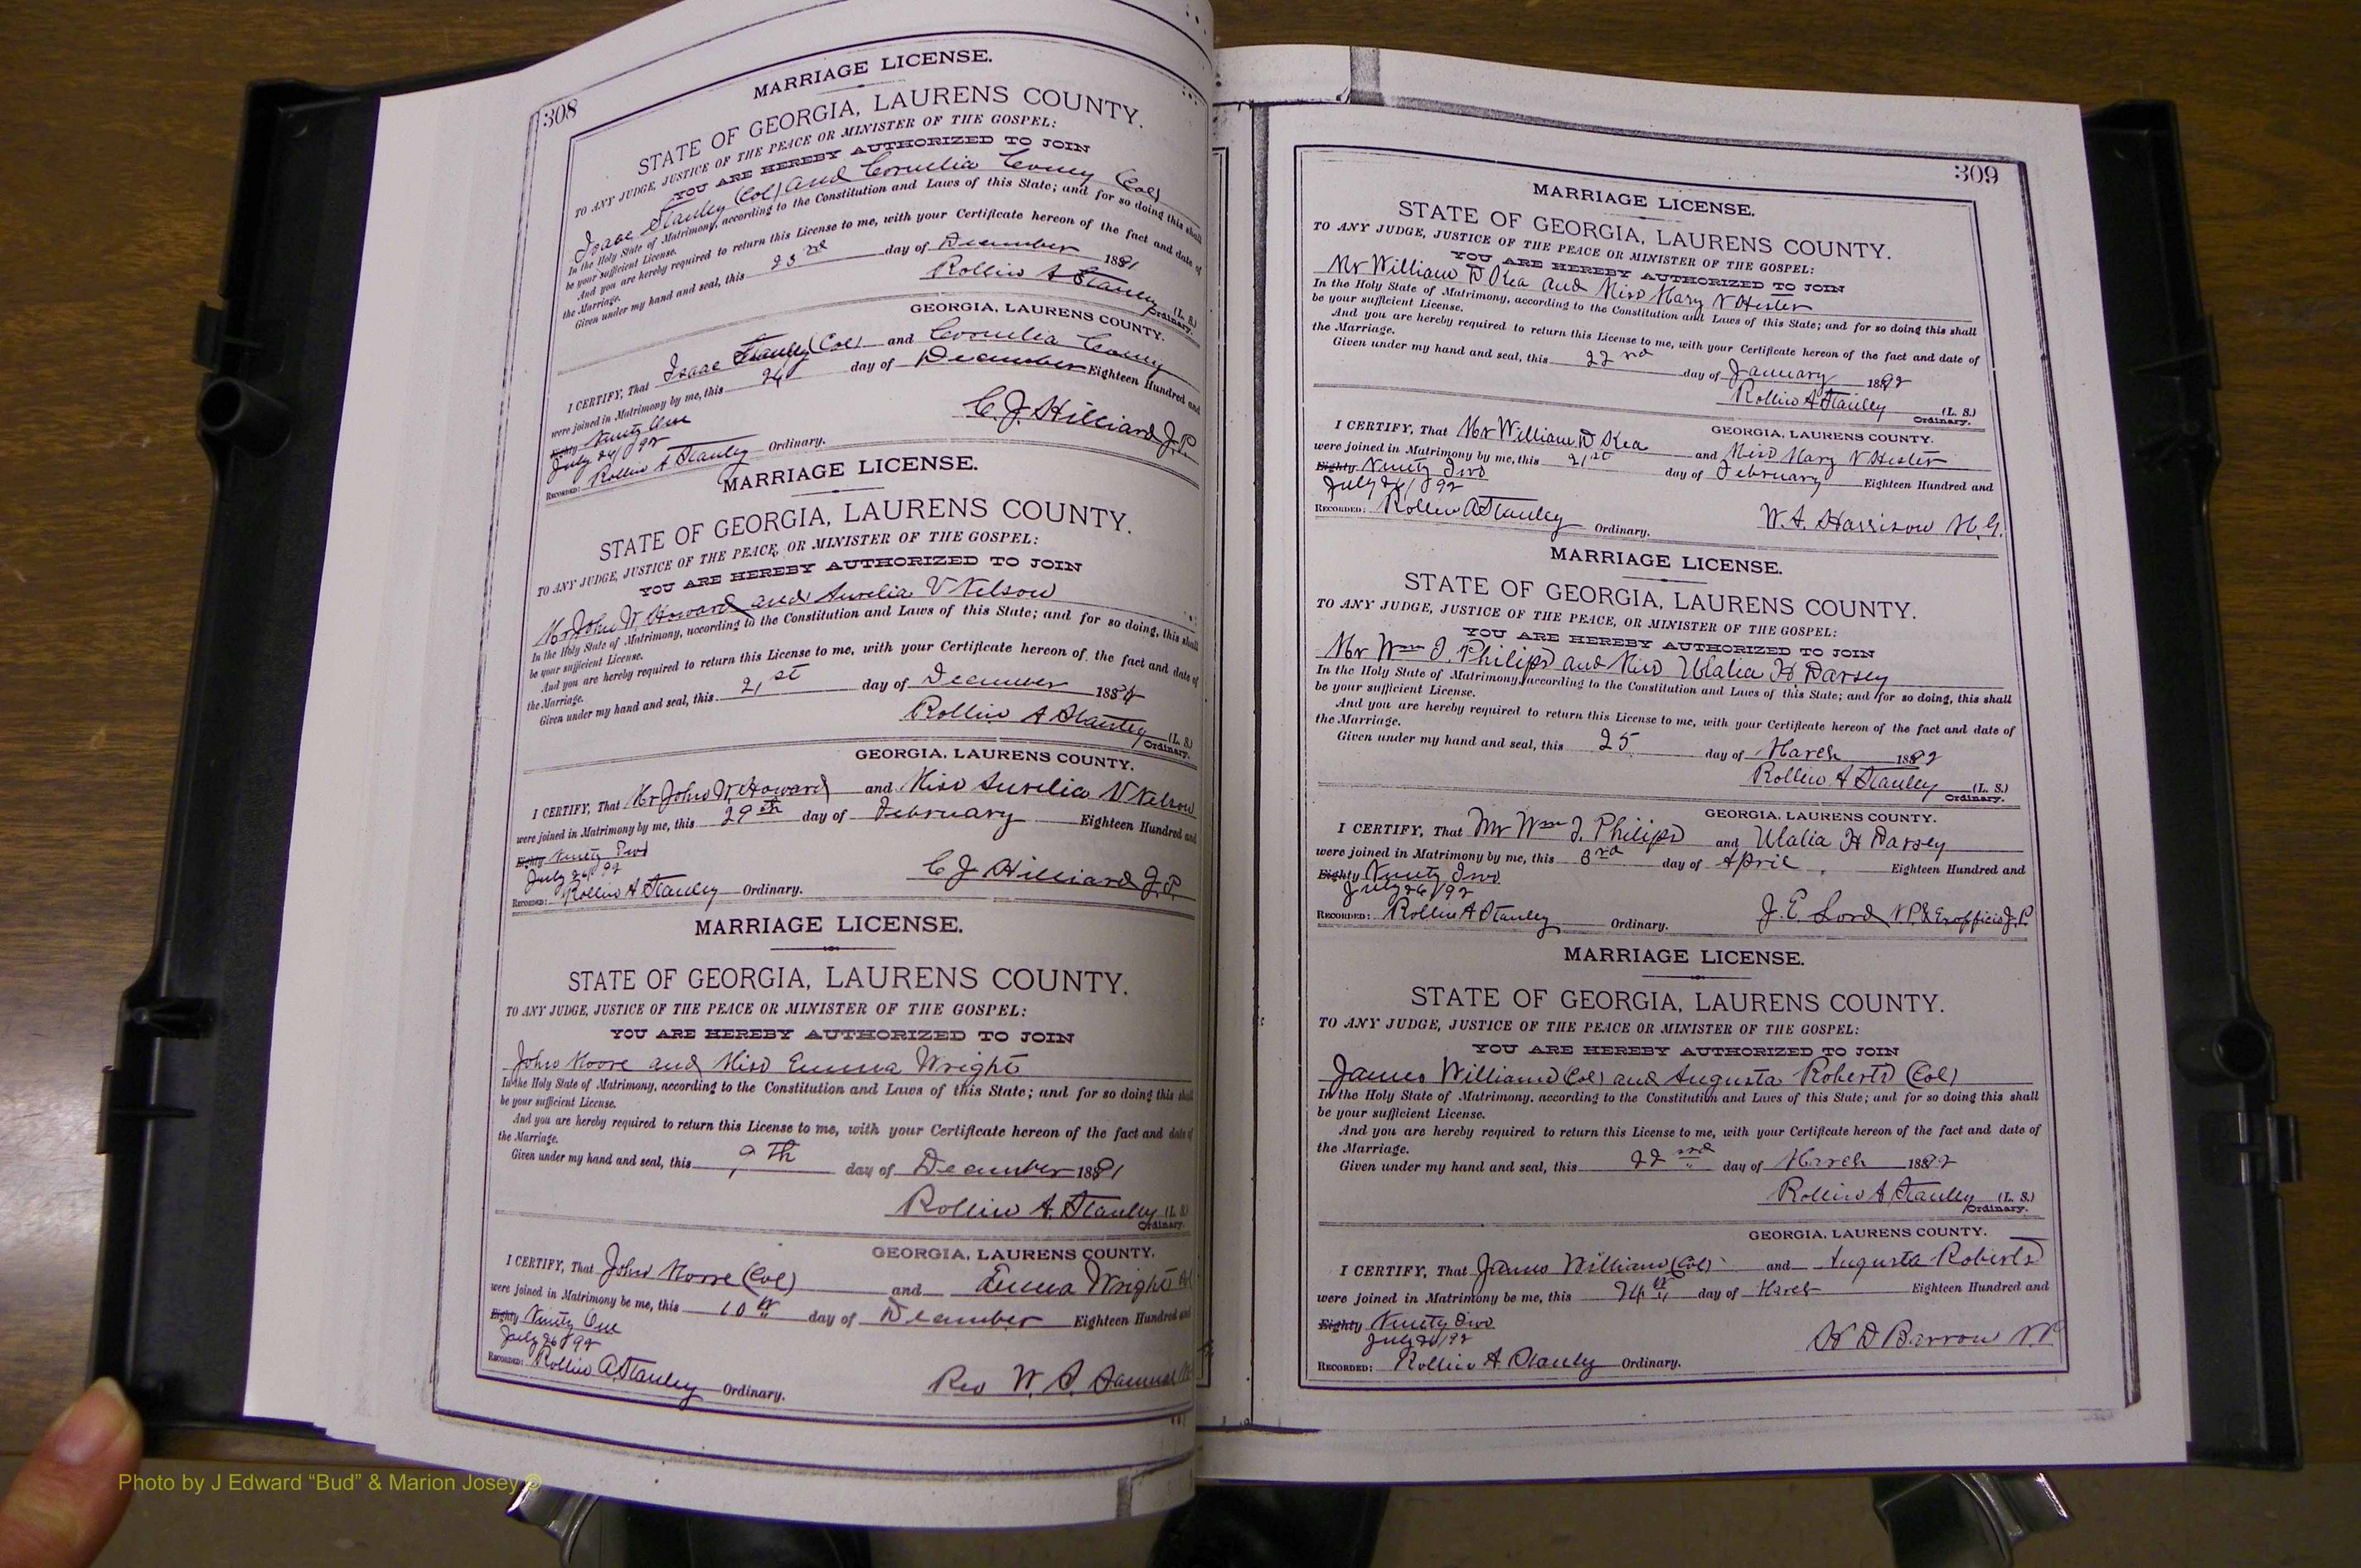 308
MARRIAGE LICENSE.
STATE OF GEORGIA, LAURENS COUNTY.
TO ANY JUDGE, JUSTICE OF THE PEACE OR MINISTER OF THE GOSPEL:
YOU ARE HEREBY AUTHORIZED TO JOIN
Isaac Stanley (Col) and Cornelia Coney (Col)
In the Holy State of Matrimony, according to the Constitution and Laws of this State; and for so doing this shall
be your sufficient License.
And you are hereby required to return this License to me, with your Certificate hereon of the fact and date of
the Marriage.
Given under my hand and seal, this 23rd day of December 1891
Rollin A Stanley (L. S.)
Ordinary.
GEORGIA, LAURENS COUNTY.
I CERTIFY, That Isaac Stanley (Col) and Cornelia Coney
were joined in Matrimony by me, this 24 day of December Eighteen Hundred and
Eighty Ninety One
July 26/92
C. J. Hilliard J.P.
RECORDED: Rollin A Stanley Ordinary.
MARRIAGE LICENSE.
STATE OF GEORGIA, LAURENS COUNTY.
TO ANY JUDGE, JUSTICE OF THE PEACE, OR MINISTER OF THE GOSPEL:
YOU ARE HEREBY AUTHORIZED TO JOIN
Mr John W. Howard and Aurelia V Nelson
In the Holy State of Matrimony, according to the Constitution and Laws of this State; and for so doing, this shall
be your sufficient License.
And you are hereby required to return this License to me, with your Certificate hereon of, the fact and date of
the Marriage.
Given under my hand and seal, this 21st day of December 188
Rollin A Stanley (L. S.)
Ordinary.
GEORGIA, LAURENS COUNTY.
I CERTIFY, That Mr John W. Howard and Miss Aurelia V Nelson
were joined in Matrimony by me, this 29th day of February Eighteen Hundred and
Eighty Ninety Two
July 26/92
C J Hilliard J.P.
RECORDED: Rollin A Stanley Ordinary.
MARRIAGE LICENSE.
STATE OF GEORGIA, LAURENS COUNTY.
TO ANY JUDGE, JUSTICE OF THE PEACE OR MINISTER OF THE GOSPEL:
YOU ARE HEREBY AUTHORIZED TO JOIN
John Moore and Miss Emma Wright
In the Holy State of Matrimony, according to the Constitution and Laws of this State; and for so doing this shall
be your sufficient License.
And you are hereby required to return this License to me, with your Certificate hereon of the fact and date of
the Marriage.
Given under my hand and seal, this 9th day of December 1891
Rollin A. Stanley (L. S.)
Ordinary.
GEORGIA, LAURENS COUNTY.
I CERTIFY, That John Moore (Col) and Emma Wright
were joined in Matrimony be me, this 10th day of December Eighteen Hundred and
Eighty Ninety One
July 26/92
Rev W. S.
RECORDED: Rollin A. Stanley Ordinary.
309
MARRIAGE LICENSE.
STATE OF GEORGIA, LAURENS COUNTY.
TO ANY JUDGE, JUSTICE OF THE PEACE OR MINISTER OF THE GOSPEL:
YOU ARE HEREBY AUTHORIZED TO JOIN
Mr William D Kea and Miss Mary V Hester
In the Holy State of Matrimony, according to the Constitution and Laws of this State; and for so doing this shall
be your sufficient License.
And you are hereby required to return this License to me, with your Certificate hereon of the fact and date of
the Marriage.
Given under my hand and seal, this 22nd day of January 1892
Rollin A Stanley (L. S.)
Ordinary.
GEORGIA, LAURENS COUNTY.
I CERTIFY, That Mr William D Kea and Miss Mary V Hester
were joined in Matrimony by me, this 21st day of February Eighteen Hundred and
Eighty Ninety Two
July 26/92
W. A. Harrison M.G.
RECORDED: Rollin A Stanley Ordinary.
MARRIAGE LICENSE.
STATE OF GEORGIA, LAURENS COUNTY.
TO ANY JUDGE, JUSTICE OF THE PEACE, OR MINISTER OF THE GOSPEL:
YOU ARE HEREBY AUTHORIZED TO JOIN
Mr Wm J. Philips and Miss Ulalia H. Darsey
In the Holy State of Matrimony, according to the Constitution and Laws of this State; and for so doing, this shall
be your sufficient License.
And you are hereby required to return this License to me, with your Certificate hereon of the fact and date of
the Marriage.
Given under my hand and seal, this 25 day of March 1892
Rollin A Stanley (L. S.)
Ordinary.
GEORGIA, LAURENS COUNTY.
I CERTIFY, That Mr Wm J. Philips and Ulalia H Darsey
were joined in Matrimony by me, this 3rd day of April Eighteen Hundred and
Eighty Ninety Two
July 26/92
J. E. Lord N.P.& Exofficio J.P.
RECORDED: Rollin A Stanley Ordinary.
MARRIAGE LICENSE.
STATE OF GEORGIA, LAURENS COUNTY.
TO ANY JUDGE, JUSTICE OF THE PEACE OR MINISTER OF THE GOSPEL:
YOU ARE HEREBY AUTHORIZED TO JOIN
James Williams (Col) and Augusta Roberts (Col)
In the Holy State of Matrimony, according to the Constitution and Laws of this State; and for so doing this shall
be your sufficient License.
And you are hereby required to return this License to me, with your Certificate hereon of the fact and date of
the Marriage.
Given under my hand and seal, this 22nd day of March 1892
Rollin A Stanley (L. S.)
Ordinary.
GEORGIA, LAURENS COUNTY.
I CERTIFY, That James Williams (Col) and Augusta Roberts
were joined in Matrimony be me, this 24th day of March Eighteen Hundred and
Eighty Ninety Two
July 26/92
H D Barrow
RECORDED: Rollin A. Stanley Ordinary.
Photo by J Edward “Bud” & Marion Josey ©